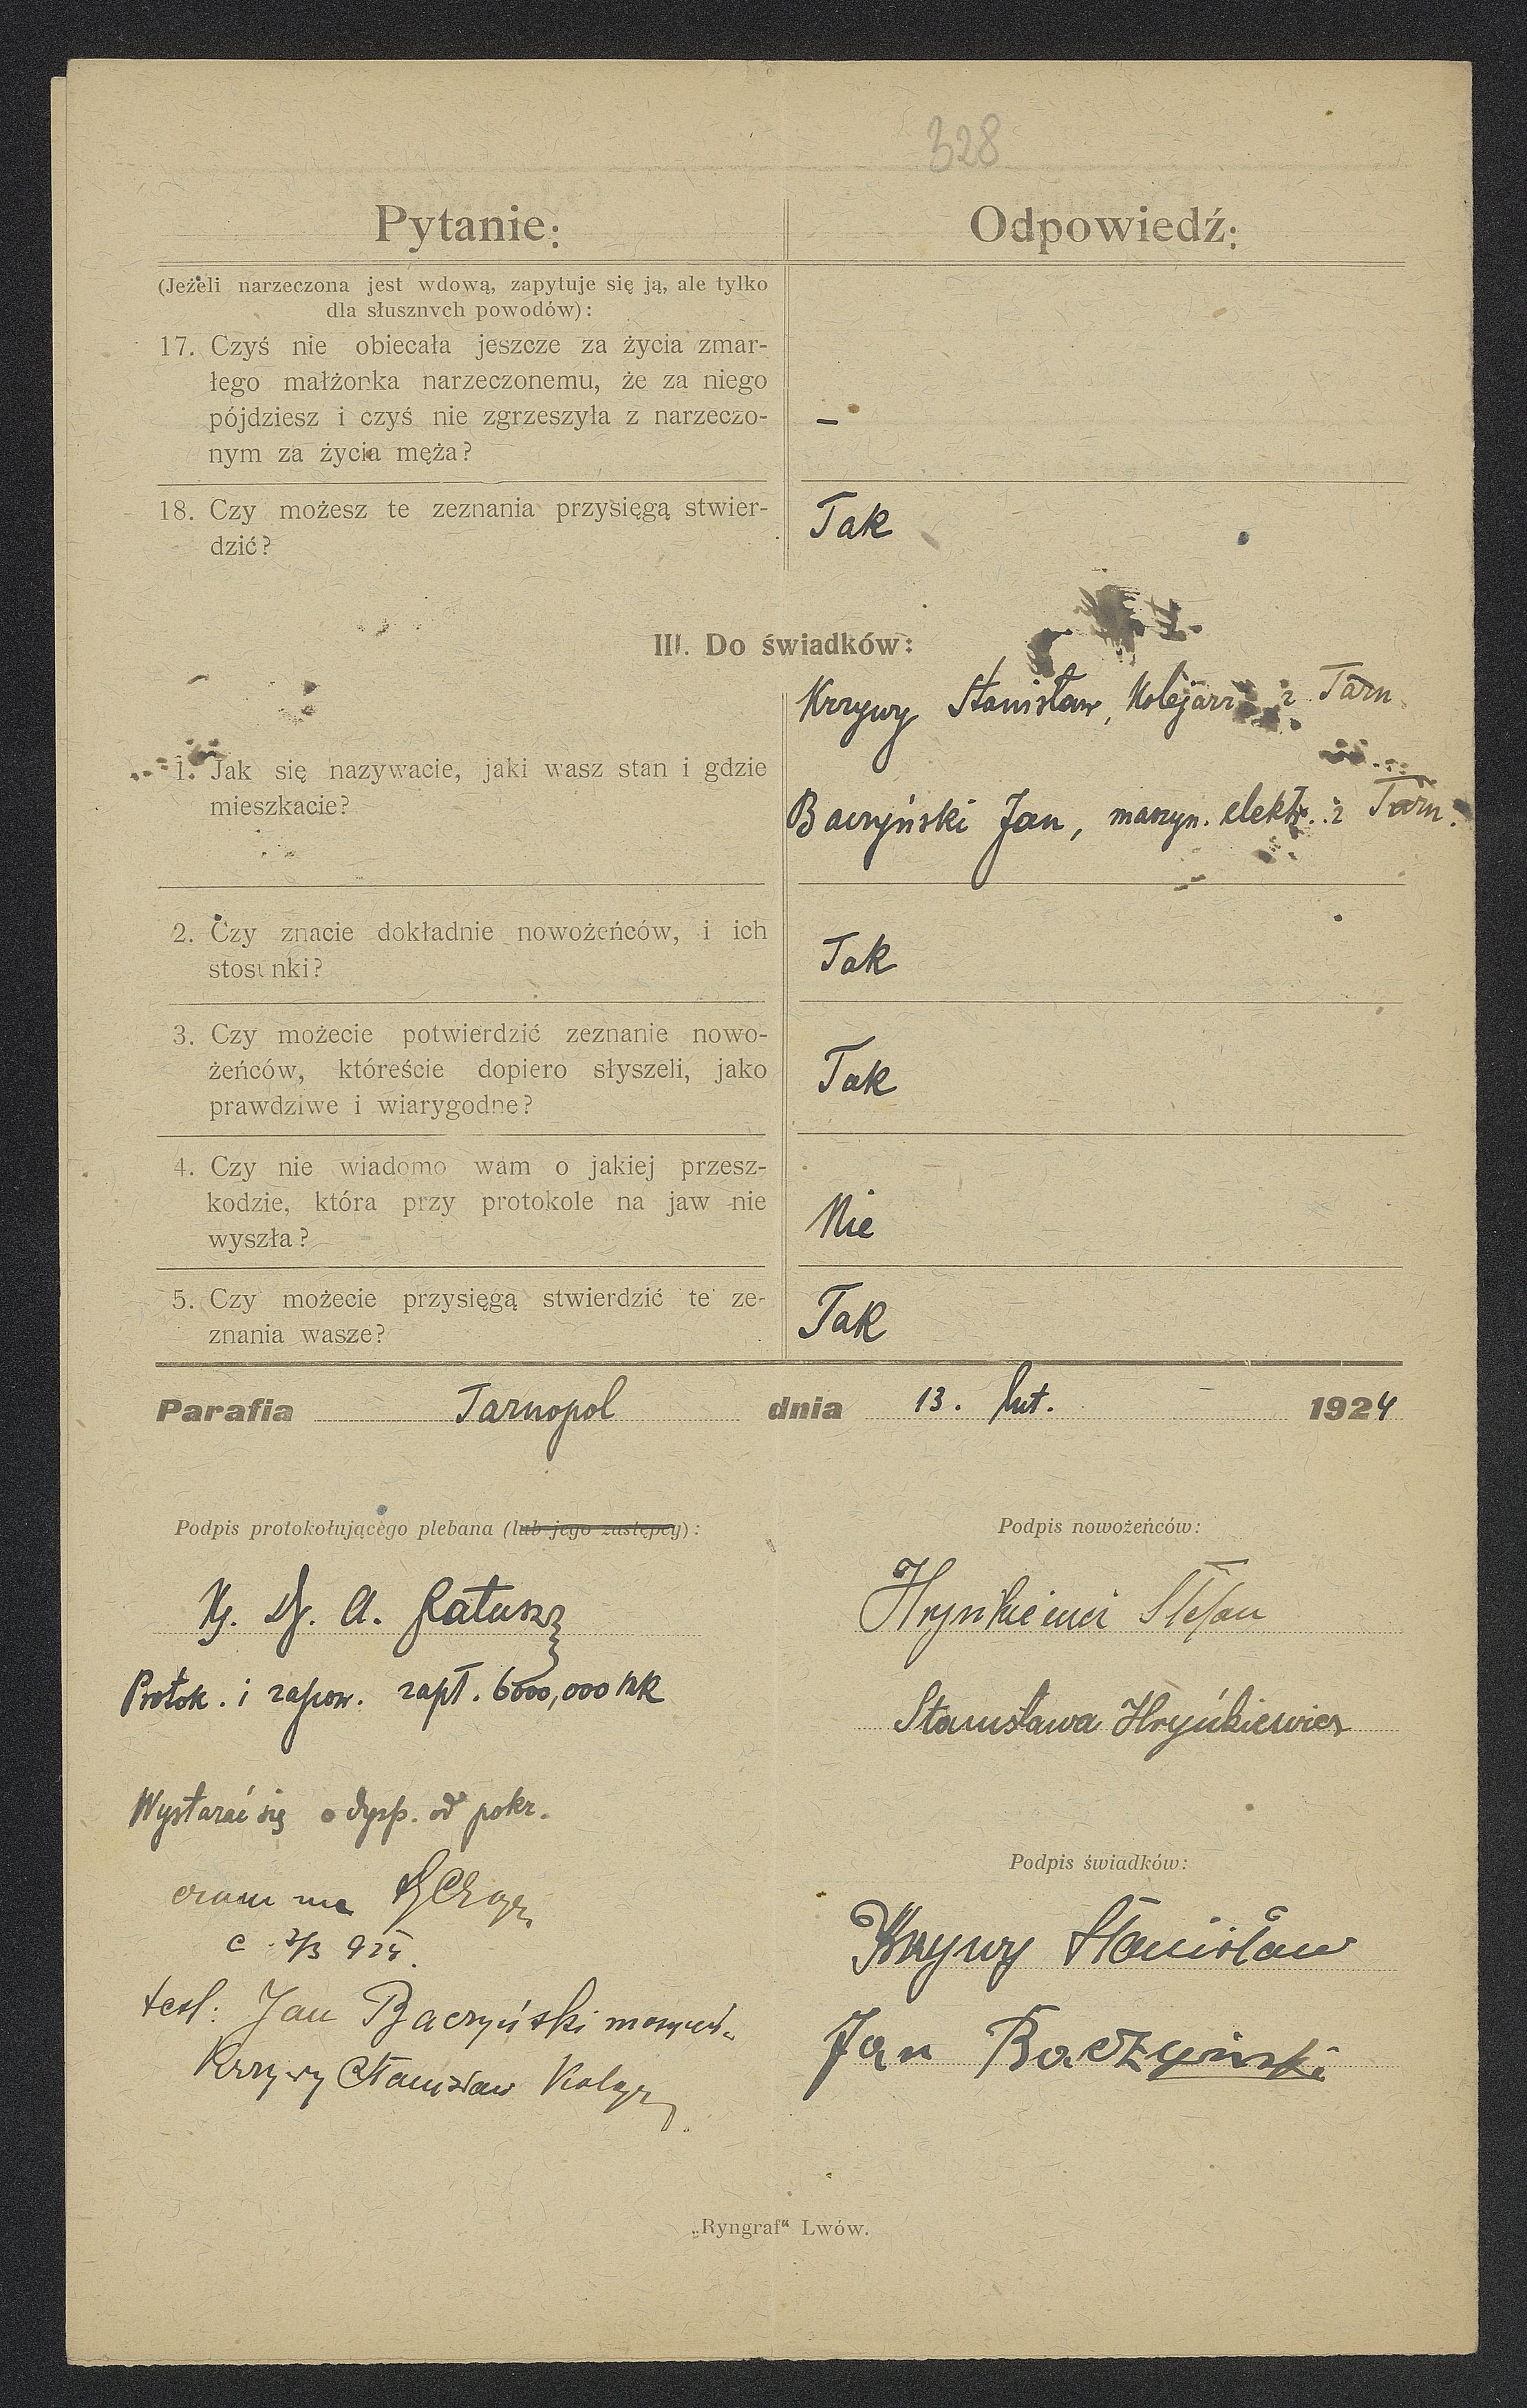 328
Pytanie:
Odpowiedź:
(Jeżeli narzeczona jest wdową, zapytuje się ją, ale tylko
dla słusznych powodów):
17. Czyś nie obiecała jeszcze za życia zmar-
łego małżonka narzeczonemu, że za niego
pójdziesz i czyś nie zgrzeszyła z narzeczo-
nym za życia męża?
–
18. Czy możesz te zeznania przysięgą stwier-
dzić?
Tak
III. Do świadków:
1. Jak się nazywacie, jaki wasz stan i gdzie
mieszkacie?
Krzywy Stanisław, Kolejarz z Tarn.
Baczyński Jan, maszyn. elektr. z Tarn.
2. Czy znacie dokładnie nowożeńców, i ich
stosunki?
Tak
3. Czy możecie potwierdzić zeznanie nowo-
żeńców, któreście dopiero słyszeli, jako
prawdziwe i wiarygodne?
Tak
4. Czy nie wiadomo wam o jakiej przesz-
kodzie, która przy protokole na jaw nie
wyszła?
Nie
5. Czy możecie przysięgą stwierdzić te ze-
znania wasze?
Tak
Parafia Tarnopol dnia 13. lut. 1924
Podpis protokołującego plebana (lub jego zastępcy):
X. Dr. A. Ratusz
Protok. i zapow. zapł. 6000,000 Mk
Wystarać się o dysp. od pokr.
2/3 925.
test: Jan Baczyński
Krzywy Stanisław
Podpis nowożeńców:
Hrynkiewicz Stefan
Stanisława Hryńkiewicz
Podpis świadków:
Krzywy Stanisław
Jan Baczyński
„Ryngraf“ Lwów.